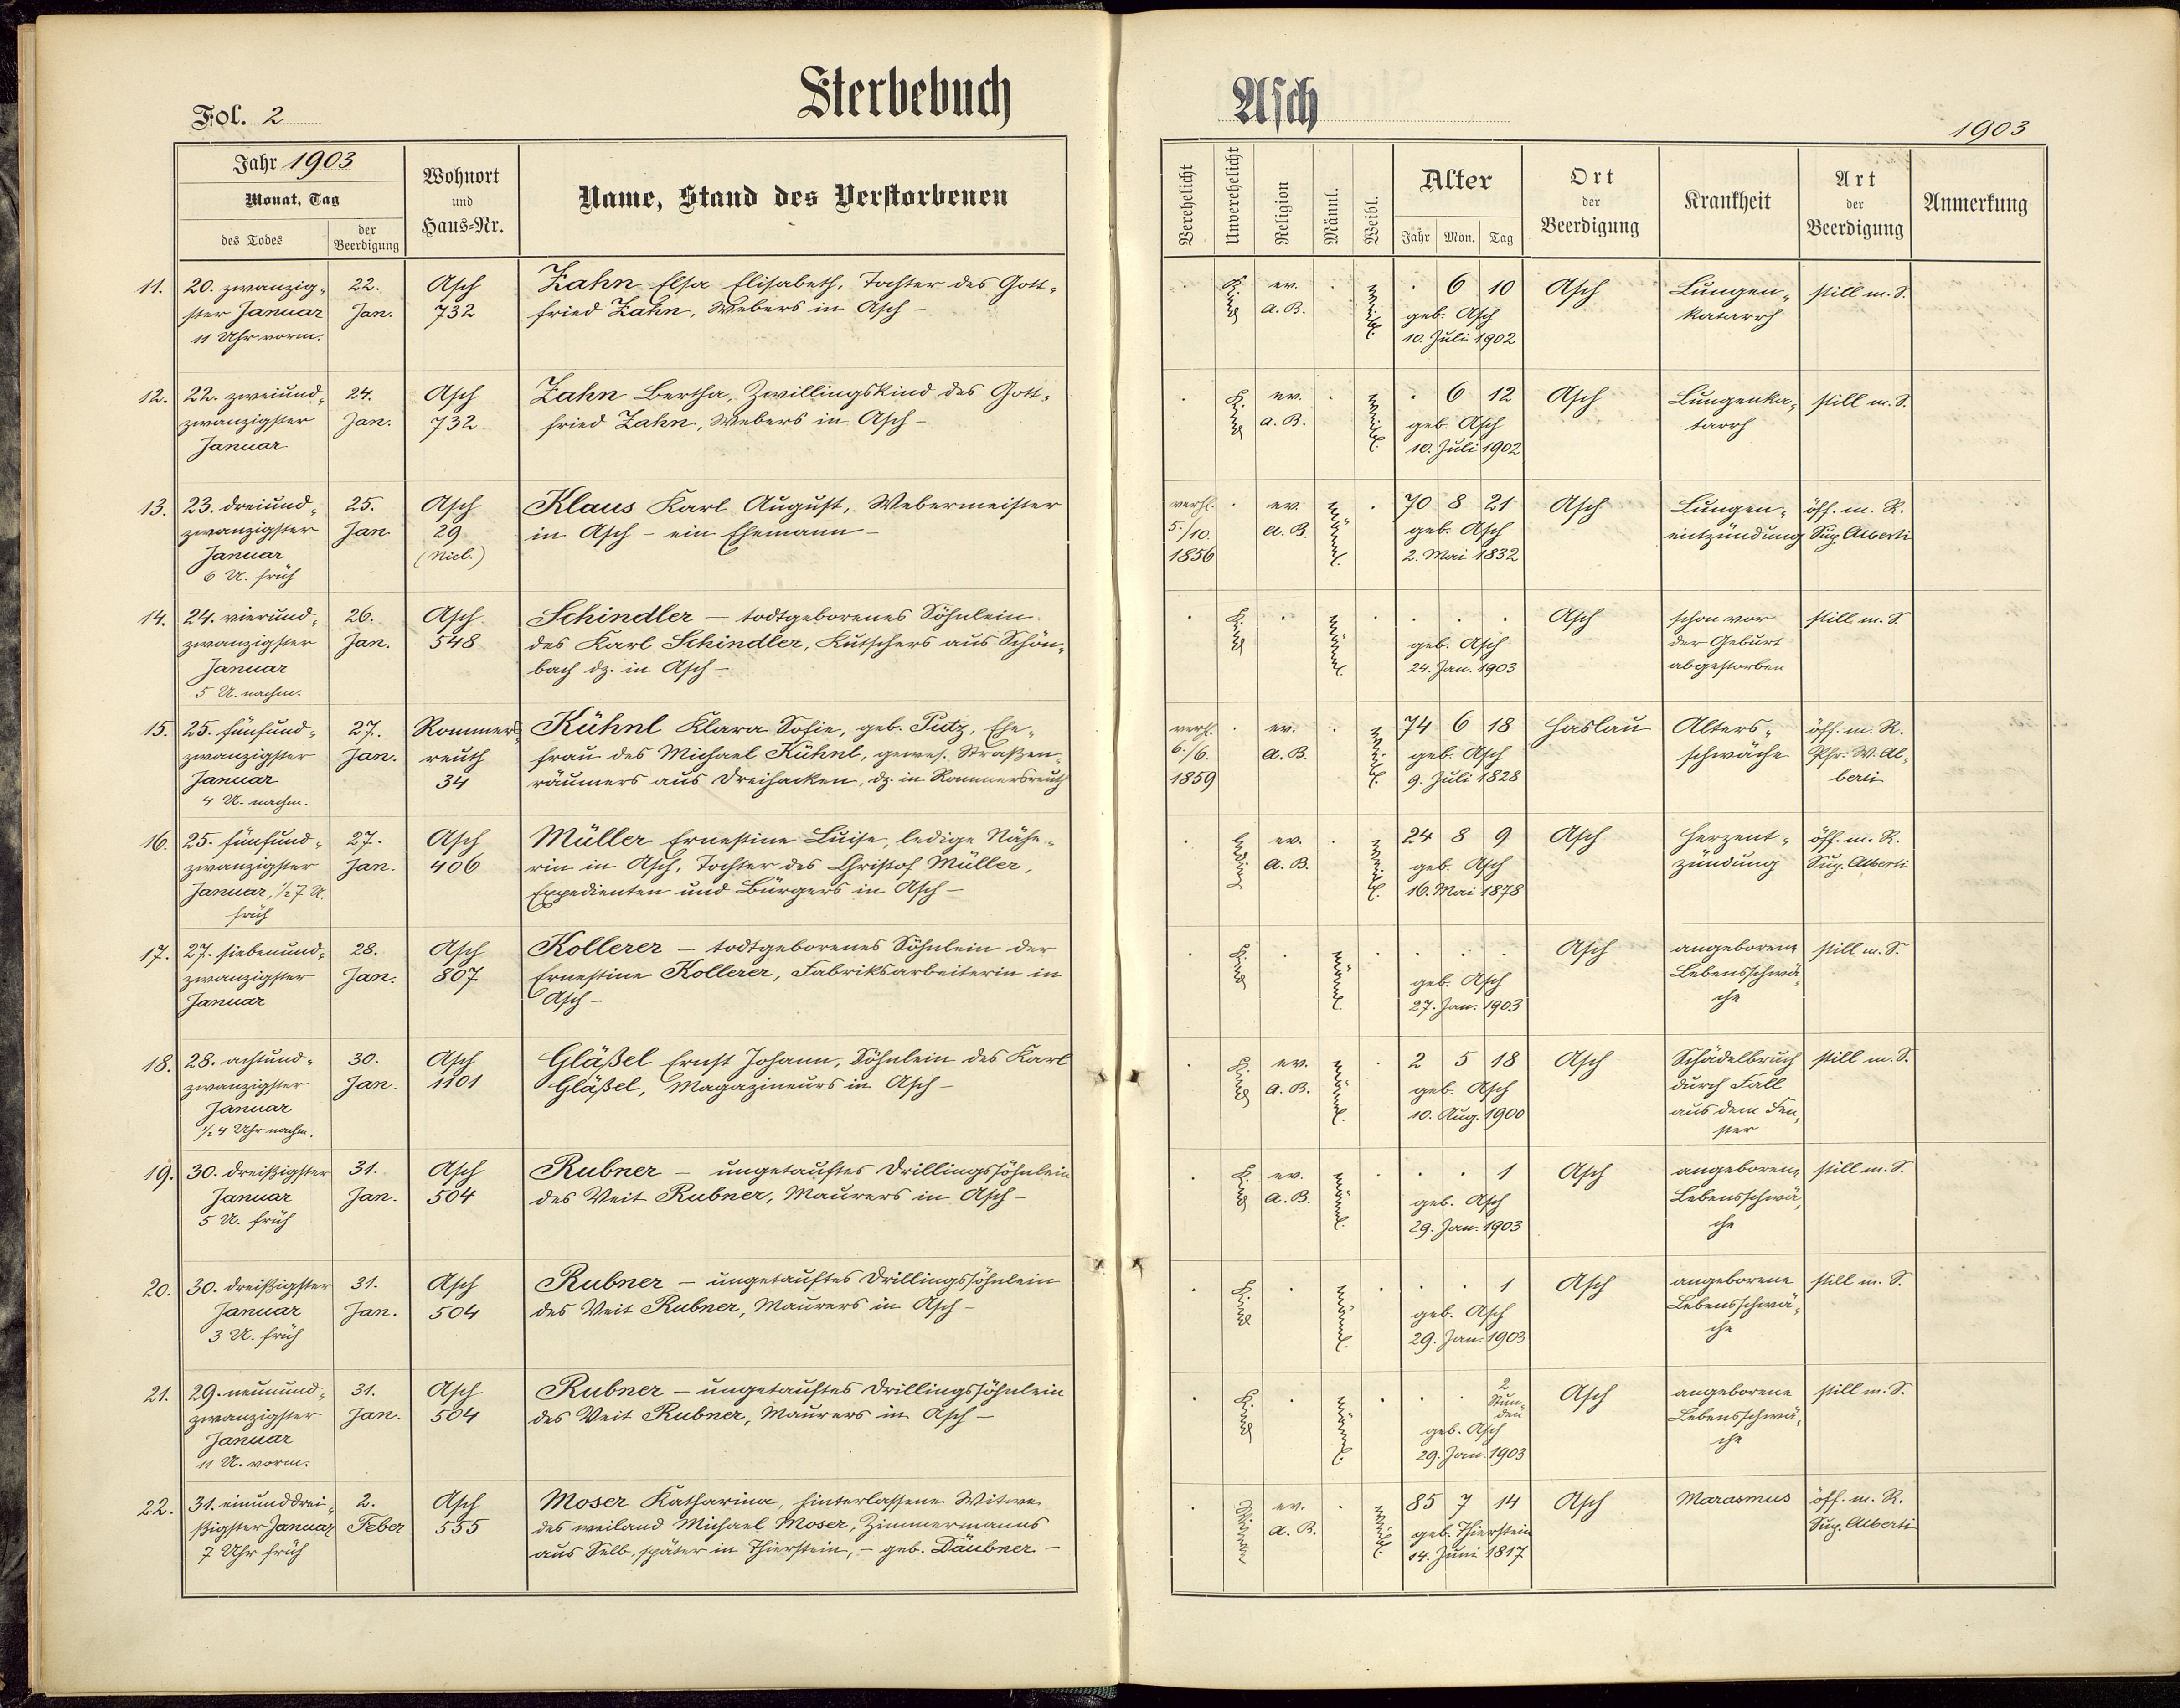 Fol. 2
Sterbebuch
Asch
1903
Jahr 1903
Monat, Tag
des Todes
der Beerdigung
Wohnort und Haus=Nr.
Name, Stand des Verstorbenen
Verehelicht
Unverehelicht
Religion
Männl.
Weibl.
Alter
Jahr Mon. Tag
Ort der Beerdigung
Krankheit
Art der Beerdigung
Anmerkung
11. 20. zwanzig- 22. Asch Zahn Elsa Elisabeth, Tochter des Gott-
ster Januar Jan. 732 fried Zahn, Webers in Asch –
11 Uhr vorm.
Kind ev. weibl. . 6 10 Asch Lungen- still m. S.
A. B. geb. Asch katarrh
10. Juli 1902
12. 22. zweiund- 24. Asch Zahn Bertha, Zwillingskind des Gott-
zwanzigster Jan. 732 fried Zahn, Webers in Asch –
Januar
Kind ev. weibl. . 6 12 Asch Lungenka- still m. S.
A. B. geb. Asch tarrh
10. Juli 1902
13. 23. dreiund- 25. Asch Klaus Karl August, Webermeister
zwanzigster Jan. 29 in Asch – ein Ehemann –
Januar (Niel.)
6 U. früh
verh. ev. männl. 70 8 21 Asch Lungen- öff. m. R.
5./10. A. B. geb. Asch entzündung Sup. Alberti
1856 2. Mai 1832
14. 24. vierund- 26. Asch Schindler – todtgeborenes Söhnlein
zwanzigster Jan. 548 des Karl Schindler, Kutschers aus Schön-
Januar bach dz. in Asch –
5 U. nachm.
Kind männl. Asch schon vor still m. S.
geb. Asch der Geburt
24. Jan. 1903 abgestorben
15. 25. fünfund- 27. Rommers- Kühnl Klara Sofie, geb. Putz, Ehe-
zwanzigster Jan. reuth frau des Michael Kühnl, gewes. Straßen-
Januar 34 räumers aus Dreihacken, dz. in Rommersreuth
4 U. nachm.
verh. ev. weibl. 74 6 18 Haslau Alters- öff. m. R.
6./6. A. B. geb. Asch schwäche Pfr. W. Al-
1859 9. Juli 1828 berti
16. 25. fünfund- 27. Asch Müller Ernestine Luise, ledige Nähe-
zwanzigster Jan. 406 rin in Asch, Tochter des Christof Müller,
Januar, ½7 U. Expedienten und Bürgers in Asch –
früh
ledig ev. weibl. 24 8 9 Asch Herzent- öff. m. R.
A. B. geb. Asch zündung Sup. Alberti
16. Mai 1878
17. 27. siebenund- 28. Asch Kollerer – todtgeborenes Söhnlein der
zwanzigster Jan. 807 Ernestine Kollerer, Fabriksarbeiterin in
Januar Asch –
Kind männl. Asch angeborene still m. S.
geb. Asch Lebensschwä-
27. Jan. 1903 che
18. 28. achtund- 30. Asch Gläßel Ernst Johann, Söhnlein des Karl
zwanzigster Jan. 1101 Gläßel, Magazineurs in Asch –
Januar
½4 Uhr nachm.
Kind ev. männl. 2 5 18 Asch Schädelbruch still m. S.
A. B. geb. Asch durch Fall
10. Aug. 1900 aus dem Fen-
ster
19. 30. dreißigster 31. Asch Rubner – ungetauftes Drillingssöhnlein
Januar Jan. 504 des Veit Rubner, Maurers in Asch –
5 U. früh
Kind ev. männl. . . 1 Asch angeborene still m. S.
A. B. geb. Asch Lebensschwä-
29. Jan. 1903 che
20. 30. dreißigster 31. Asch Rubner – ungetauftes Drillingssöhnlein
Januar Jan. 504 des Veit Rubner, Maurers in Asch –
3 U. früh
Kind männl. . . 1 Asch angeborene still m. S.
geb. Asch Lebensschwä-
29. Jan. 1903 che
21. 29. neunund- 31. Asch Rubner – ungetauftes Drillingssöhnlein
zwanzigster Jan. 504 des Veit Rubner, Maurers in Asch –
Januar
11 U. vorm.
Kind männl. . . 2 Stunden Asch angeborene still m. S.
geb. Asch Lebensschwä-
29. Jan. 1903 che
22. 31. einunddrei- 2. Asch Moser Katharina, hinterlassene Witwe
ßigster Januar Feber 555 des weiland Michael Moser, Zimmermanns
7 Uhr früh aus Selb, später in Thierstein, – geb. Däubner –
Witwe ev. weibl. 85 7 14 Asch Marasmus öff. m. R.
A. B. geb. Thierstein Sup. Alberti
14. Juni 1817